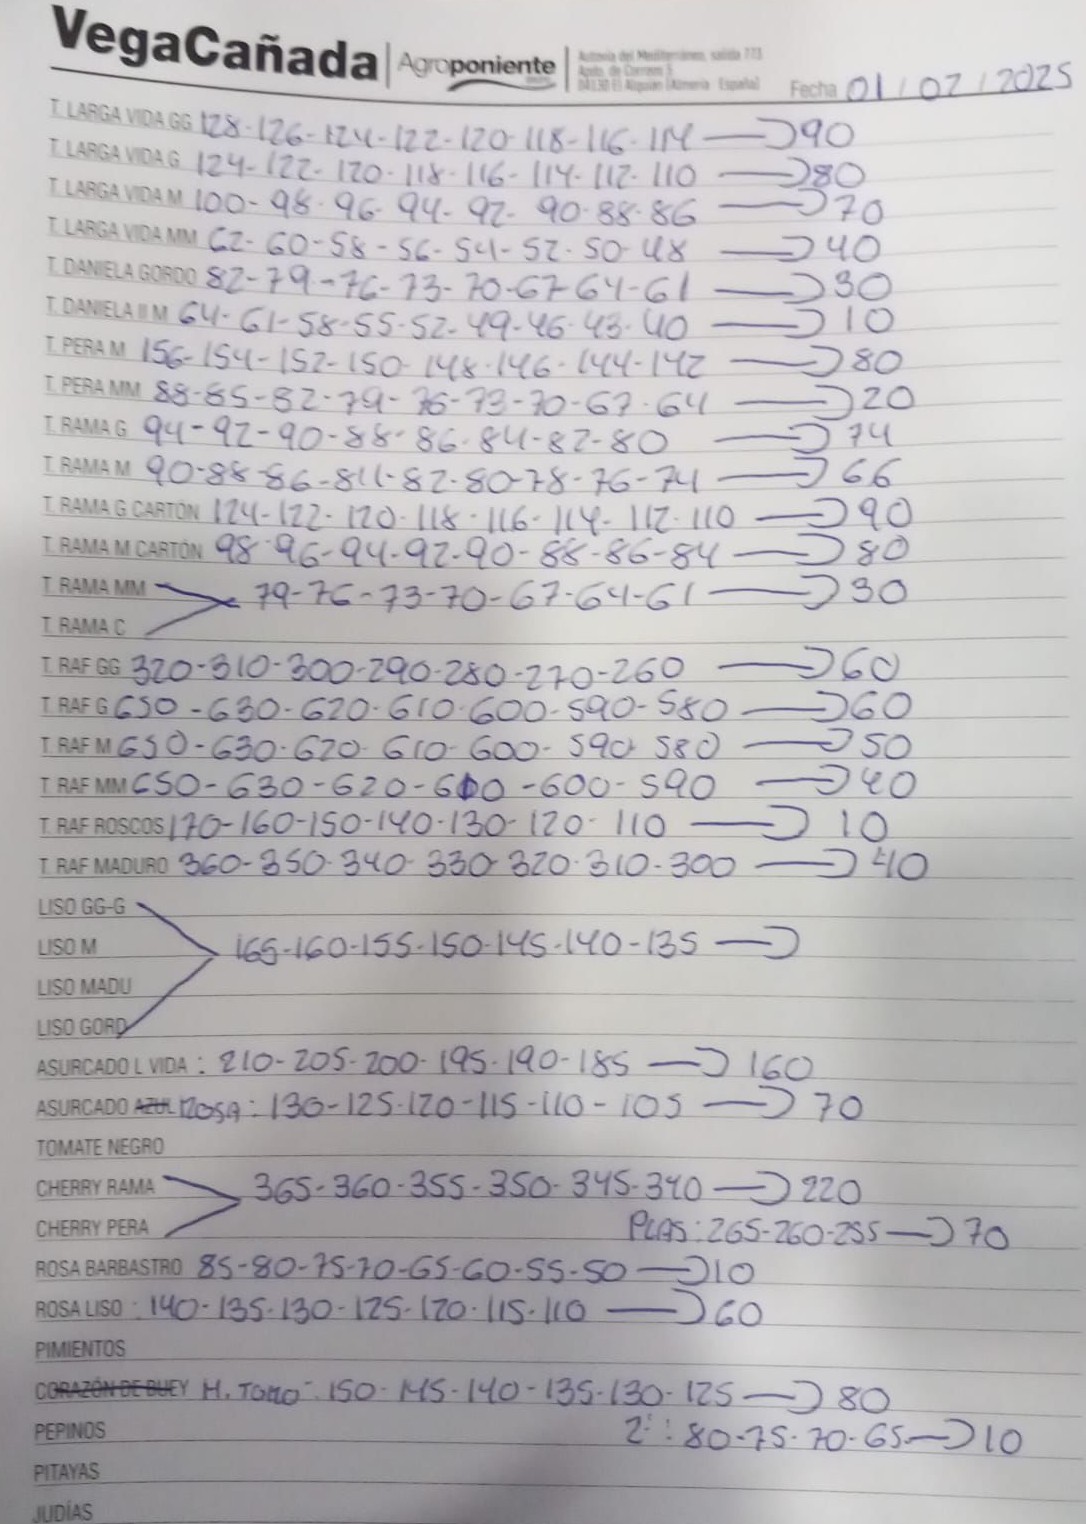 VegaCañada | Agroponiente | Autovía del Mediterráneo, salida 773
Apdo. de Correos 5
04130 El Alquián (Almería - España)
Fecha 01/02/2025
T. LARGA VIDA GG 128-126-124-122-120-118-116-114 → 90
T. LARGA VIDA G 124-122-120-118-116-114-112-110 → 80
T. LARGA VIDA M 100-98-96-94-92-90-88-86 → 70
T. LARGA VIDA MM 62-60-58-56-54-52-50-48 → 40
T. DANIELA GORDO 82-79-76-73-70-67-64-61 → 30
T. DANIELA II M 64-61-58-55-52-49-46-43-40 → 10
T. PERA M 156-154-152-150-148-146-144-142 → 80
T. PERA MM 88-85-82-79-76-73-70-67-64 → 20
T. RAMA G 94-92-90-88-86-84-82-80 → 74
T. RAMA M 90-88-86-84-82-80-78-76-74 → 66
T. RAMA G CARTÓN 124-122-120-118-116-114-112-110 → 90
T. RAMA M CARTÓN 98-96-94-92-90-88-86-84 → 80
T. RAMA MM 79-76-73-70-67-64-61 → 30
T. RAMA C
T. RAF GG 320-310-300-290-280-270-260 → 60
T. RAF G 650-630-620-610-600-590-580 → 60
T. RAF M 650-630-620-610-600-590-580 → 50
T. RAF MM 650-630-620-610-600-590 → 40
T. RAF ROSCOS 170-160-150-140-130-120-110 → 10
T. RAF MADURO 360-350-340-330-320-310-300 → 40
LISO GG-G
LISO M 165-160-155-150-145-140-135 →
LISO MADU
LISO GORD
ASURCADO L VIDA : 210-205-200-195-190-185 → 160
ASURCADO AZUL ROSA : 130-125-120-115-110-105 → 70
TOMATE NEGRO
CHERRY RAMA 365-360-355-350-345-340 → 220
CHERRY PERA PLAS: 265-260-255 → 70
ROSA BARBASTRO 85-80-75-70-65-60-55-50 → 10
ROSA LISO : 140-135-130-125-120-115-110 → 60
PIMIENTOS
CORAZÓN DE BUEY M. TOMO: 150-145-140-135-130-125 → 80
PEPINOS 2ª: 80-75-70-65 → 10
PITAYAS
JUDÍAS